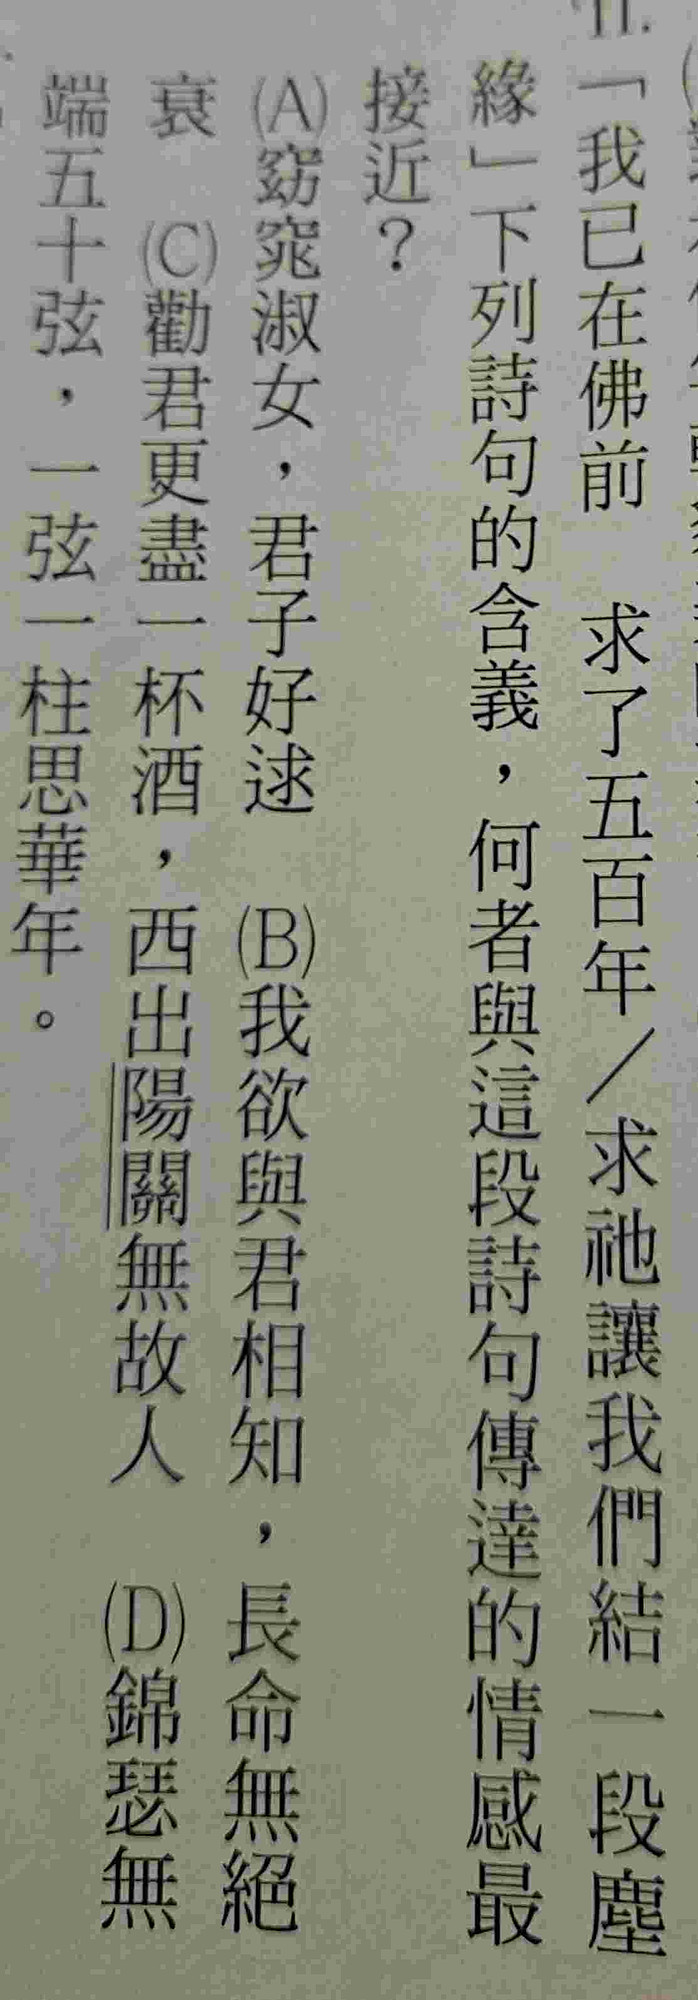 「我已在佛前 求了五百年／求祂讓我們結一段塵
緣」下列詩句的含義，何者與這段詩句傳達的情感最
接近？
(A)窈窕淑女，君子好逑 (B)我欲與君相知，長命無絕
衰 (C)勸君更盡一杯酒，西出陽關無故人 (D)錦瑟無
端五十弦，一弦一柱思華年。